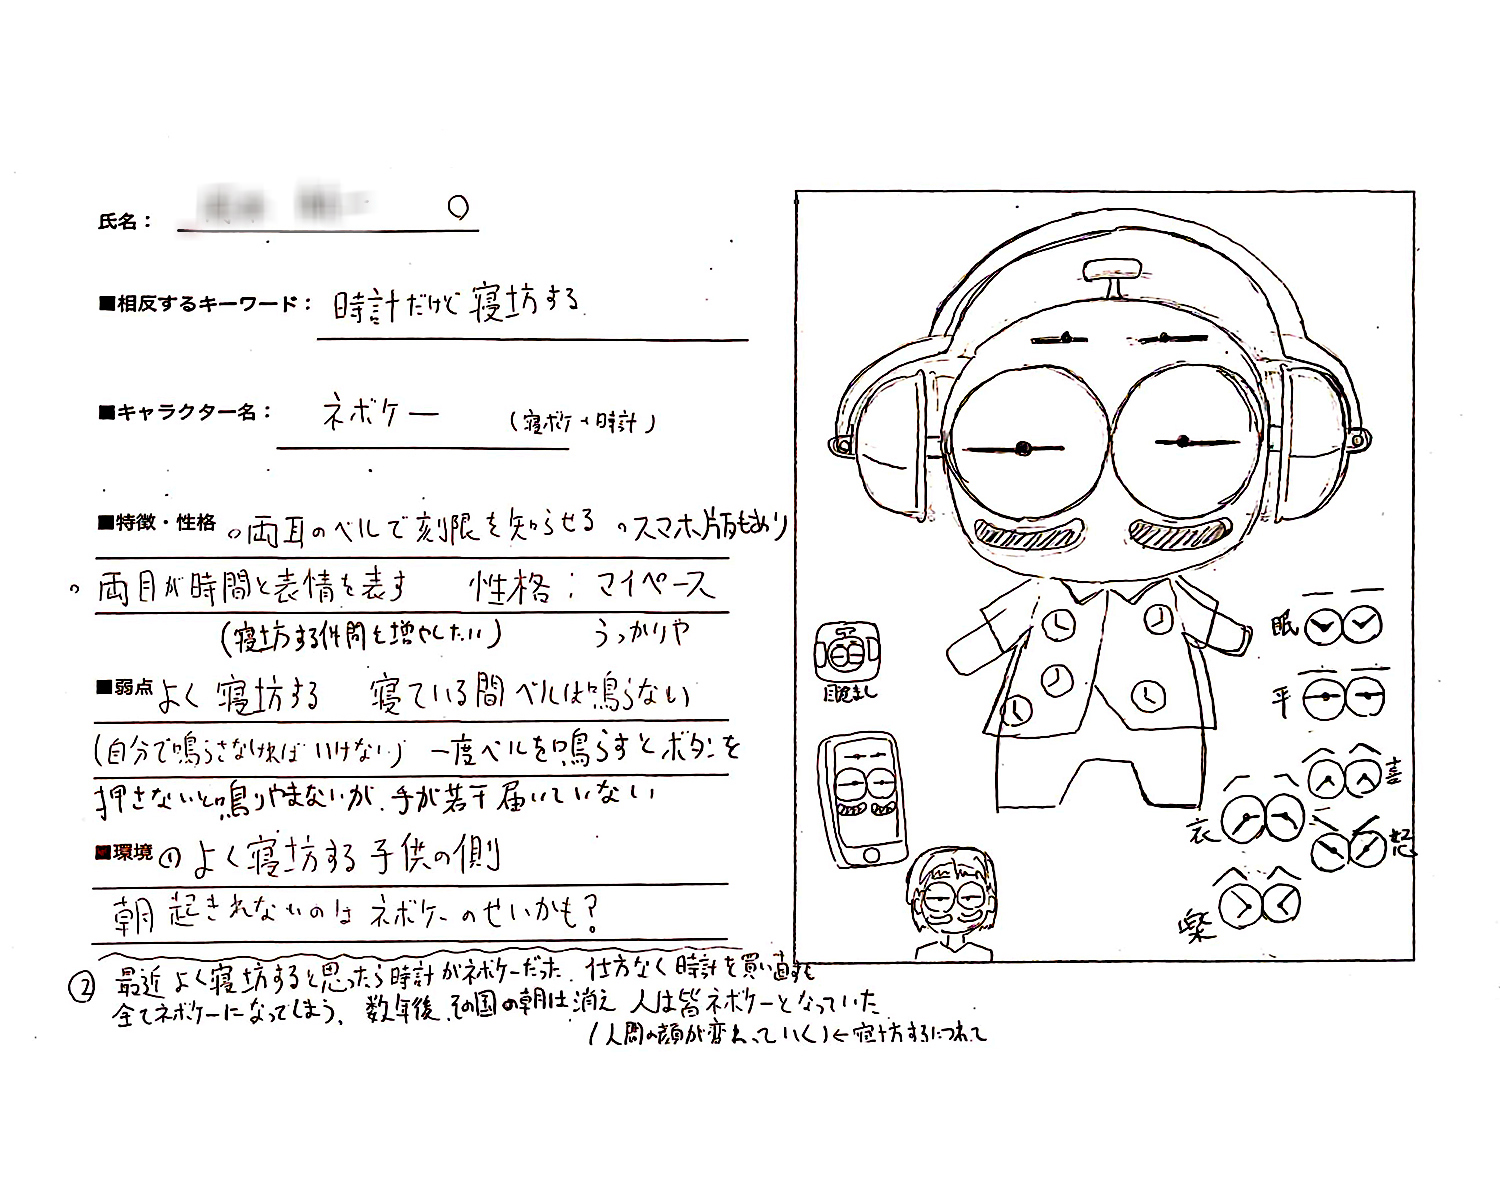 氏名：
■相反するキーワード： 時計だけど寝坊する
■キャラクター名： ネボケー （寝ボケ+時計）
■特徴・性格 。両耳のベルで刻限を知らせる 。スマホ版もあり
。両目が時間と表情を表す 性格：マイペース
（寝坊する仲間を増やしたい） うっかりや
■弱点 よく寝坊する 寝ている間ベルは鳴らない
（自分で鳴らさなければいけない） 一度ベルを鳴らすとボタンを
押さないと鳴りやまないが、手が若干届いていない
■環境 ① よく寝坊する子供の側
朝起きれないのはネボケーのせいかも？
② 最近よく寝坊すると思ったら時計がネボケーだった、仕方なく時計を買い直すも
全てネボケーになってしまう、数年後、その国の朝は消え 人は皆ネボケーとなっていた
（人間の顔が変わっていく）←寝坊するにつれて
目覚まし
眠
平
喜
哀
怒
楽